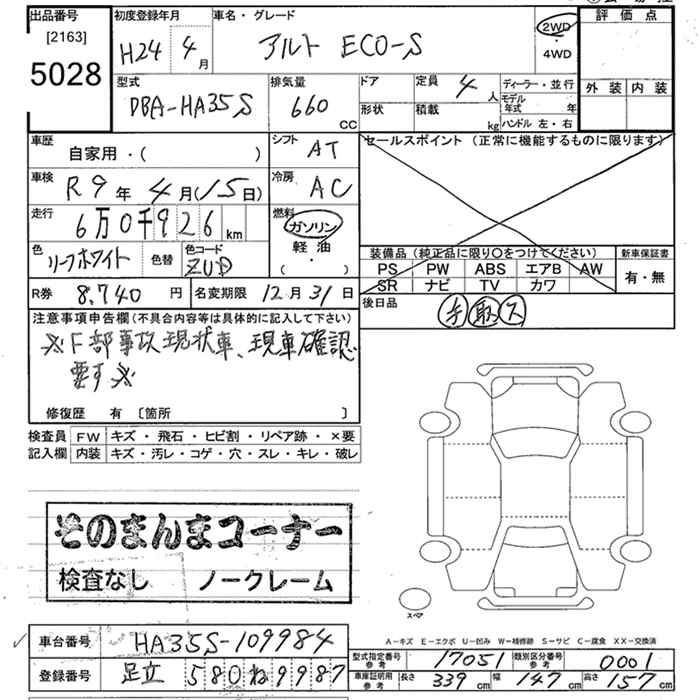 出品番号
[2163]
5028
初度登録年月
H24 4月
車名・グレード
アルト ECO-S
2WD
・
4WD
評価点
外装 内装
型式
DBA-HA35S
排気量
660 CC
ドア
定員 4人
形状
積載 kg
ディーラー・並行
モデル年式 年
ハンドル 左・右
車歴
自家用・( )
シフト AT
セールスポイント (正常に機能するものに限ります)
車検 R9年4月(15日)
冷房 AC
走行 6万0千926km
燃料
ガソリン
軽油
( )
色 リーフホワイト 色替
色コード ZUD
装備品 (純正品に限り○をつけてください)
PS PW ABS エアB AW
SR ナビ TV カワ
新車保証書
有・無
R券 8,740円 名変期限 12月31日
後日品
手 取 ス
注意事項申告欄(不具合内容等は具体的に記入して下さい)
※F部事故現状車、現車確認
要す※
修復歴 有 〔箇所 〕
検査員 FW キズ・飛石・ヒビ割・リペア跡・×要
記入欄 内装 キズ・汚レ・コゲ・穴・スレ・キレ・破レ
そのまんまコーナー
検査なし ノークレーム
スペア
A－キズ E－エクボ U－凹み W－補修跡 S－サビ C－腐食 XX－交換済
車台番号 HA35S-109984
登録番号 足立 580 ね 9987
型式指定番号 参考 17051 類別区分番号 参考 0001
車庫証明用 参考 長さ 339cm 幅 147cm 高さ 157cm